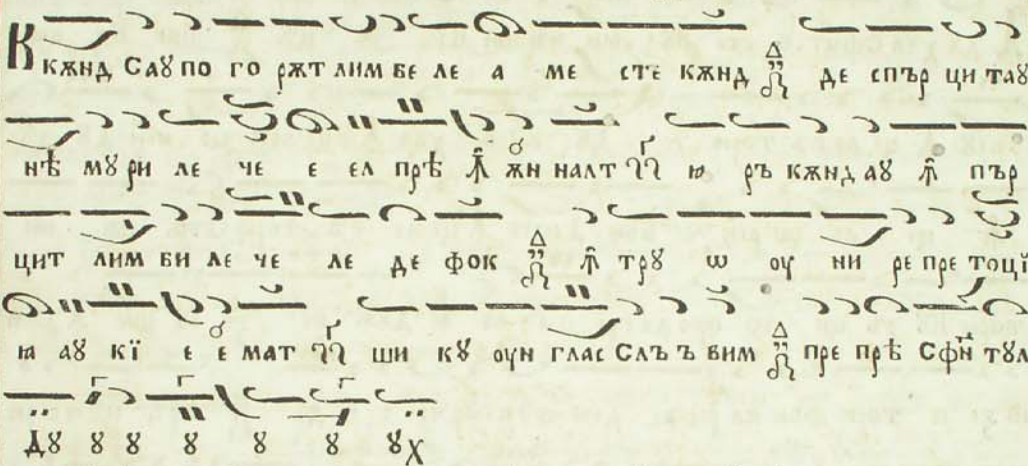 К кѫнд Саꙋ по го рѫт лим бе ле а ме сте кѫнд де спър ци таꙋ
нѣ мꙋ ри ле че е ел прѣ ꙟ ѫн налт ю ръ кѫнд аꙋ ꙟ пър
цит лим би ле че ле де фок ꙟ трꙋ ѡ оу ни ре пре тоцї
ꙗ аꙋ кї е е мат ши кꙋ оун глас Слъ ъ вим пре прѣ Сфн тꙋл
Дꙋ ꙋ ꙋ ꙋ ꙋ ꙋ ꙋх